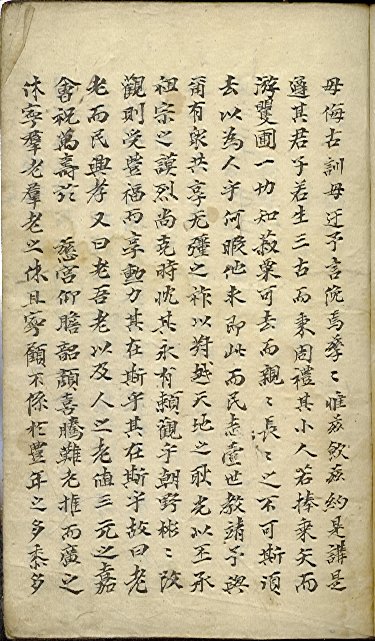 毋侮古訓毋迂予言俛焉孳〻惟茲飲茲約是講是
遵其君子若生三古而秉周禮其小人若捧桑矢而
游矍圃一切知菽粟可去而親〻長〻之不可斯須
去以為人乎何暇他求即此而民志壹世教靖予與
爾有眾共享无疆之祚以對越天地之耿光以丕承
祖宗之謨烈尚克時忱其永有頼觀乎朝野彬〻改
觀則受豈福而享勳力其在斯乎其在斯乎故曰老
老而民興孝又曰老吾老以及人之老值三元之嘉
會祝萬壽於 慈宮仰瞻韶顏喜騰難老推而廣之
休寧羣老羣老之休且寧顧不係於豐年之多黍多